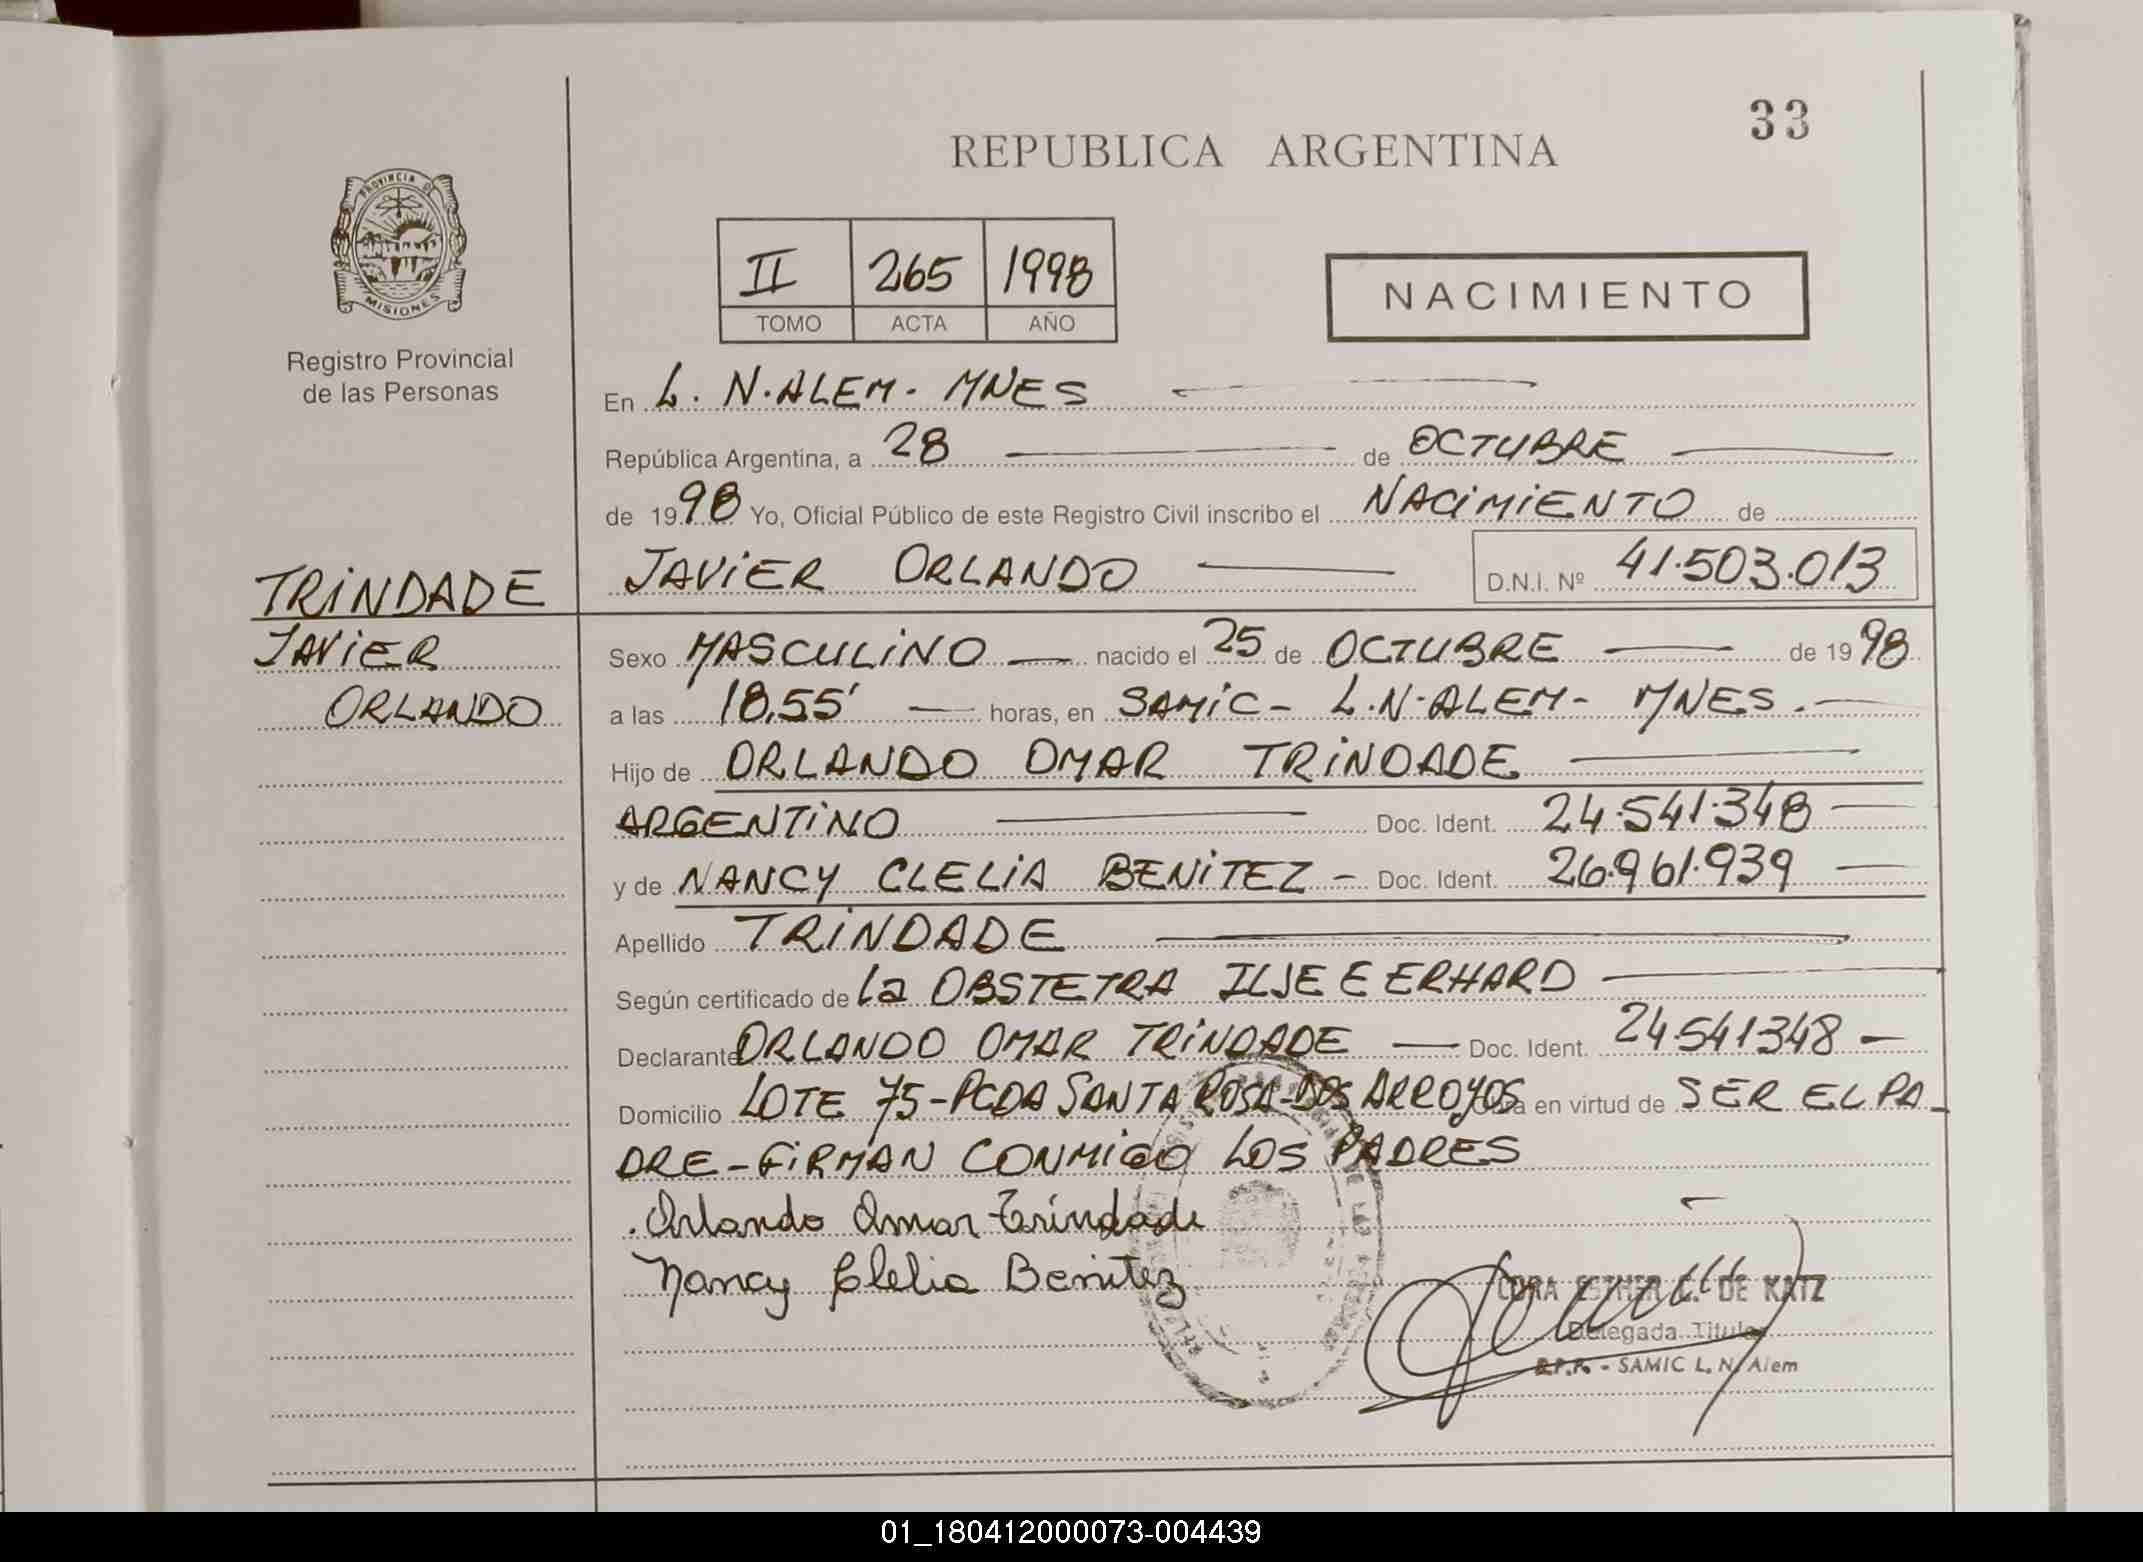 33
REPUBLICA ARGENTINA
PROVINCIA DE
MISIONES
Registro Provincial
de las Personas
II 265 1998
TOMO ACTA AÑO
NACIMIENTO
En L. N. ALEM - MNES
República Argentina, a 28 de OCTUBRE
de 1998 Yo, Oficial Público de este Registro Civil inscribo el NACIMIENTO de
JAVIER ORLANDO D.N.I. Nº 41.503.013
TRINDADE
JAVIER
ORLANDO
Sexo MASCULINO nacido el 25 de OCTUBRE de 1998
a las 18,55' horas, en SAMIC - L.N. ALEM - MNES.
Hijo de ORLANDO OMAR TRINDADE
ARGENTINO Doc. Ident. 24.541.348
y de NANCY CLELIA BENITEZ - Doc. Ident. 26.961.939
Apellido TRINDADE
Según certificado de la OBSTETRA ILSE E ERHARD
Declarante ORLANDO OMAR TRINDADE Doc. Ident. 24.541348
Domicilio LOTE 75 - PCDA SANTA ROSA - DOS ARROYOS Obra en virtud de SER EL PA-
DRE - FIRMAN CONMIGO LOS PADRES
Orlando Omar Trindade
Nancy Clelia Benitez
CORA ESTHER C. DE KATZ
Delegada Titular
R.P.P. - SAMIC L. N. Alem
01_180412000073-004439